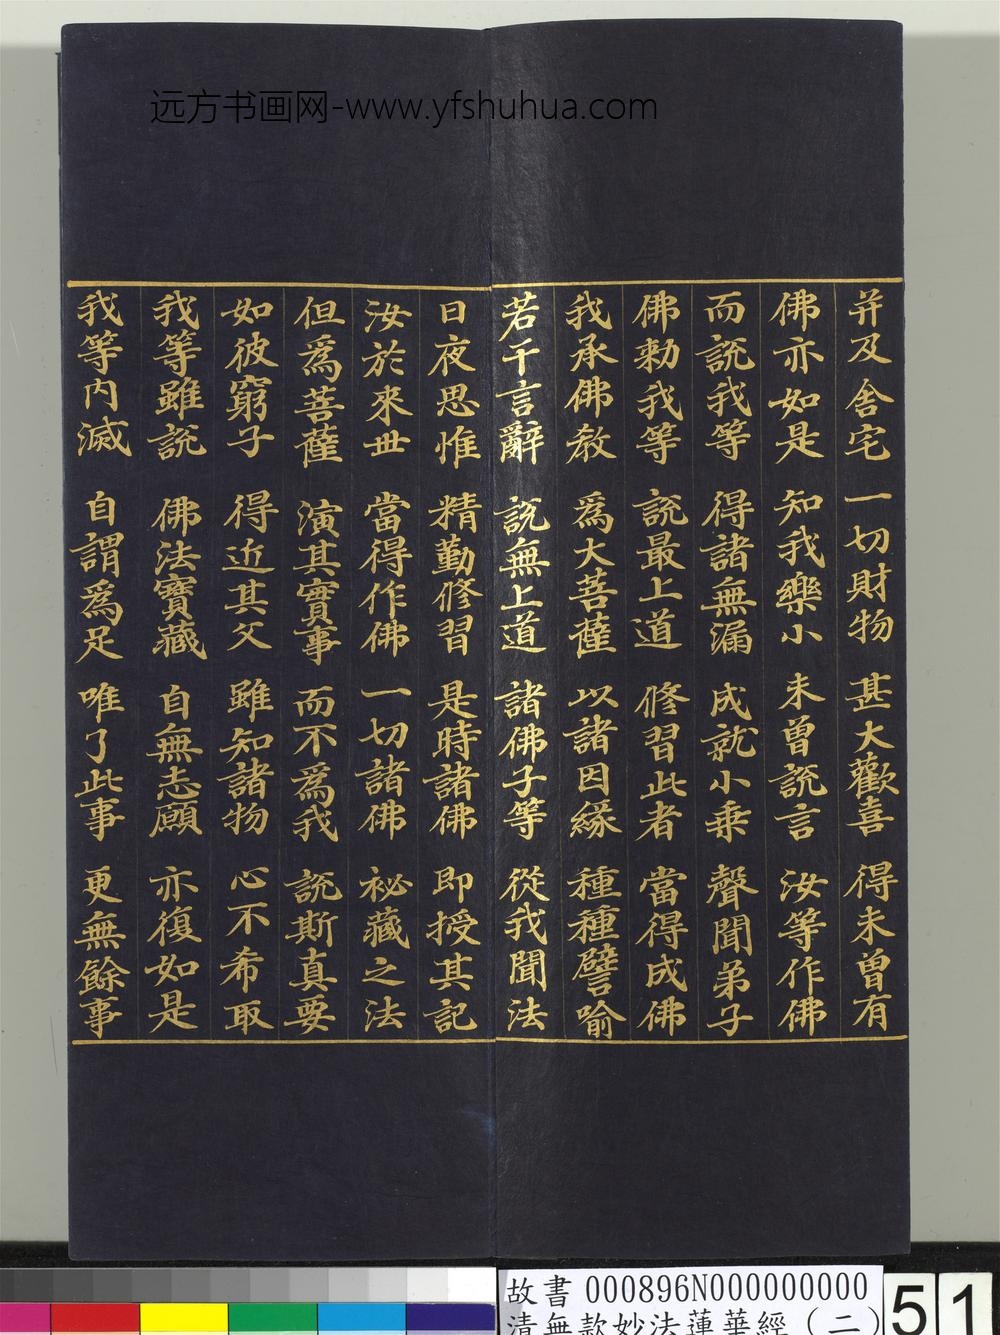 远方书画网-www.yfshuhua.com
并及舍宅 一切財物 甚大歡喜 得未曾有
佛亦如是 知我樂小 未曾說言 汝等作佛
而說我等 得諸無漏 成就小乘 聲聞弟子
佛勅我等 說最上道 修習此者 當得成佛
我承佛教 為大菩薩 以諸因緣 種種譬喻
若干言辭 說無上道 諸佛子等 從我聞法
日夜思惟 精勤修習 是時諸佛 即授其記
汝於來世 當得作佛 一切諸佛 祕藏之法
但為菩薩 演其實事 而不為我 說斯真要
如彼窮子 得近其父 雖知諸物 心不希取
我等雖說 佛法寶藏 自無志願 亦復如是
我等內滅 自謂為足 唯了此事 更無餘事
故書 000896N000000000
清無款妙法蓮華經(二)
51